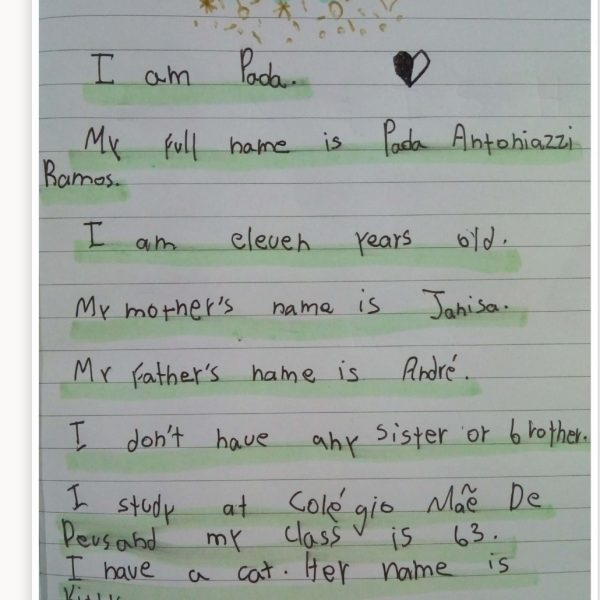 I am Pada.
My full name is Pada Antoniazzi
Ramos.
I am eleven years old.
My mother's name is Janisa.
My father's name is André.
I don't have any sister or brother.
I study at Colégio Mãe De
Deus and my class is 63.
I have a cat. Her name is